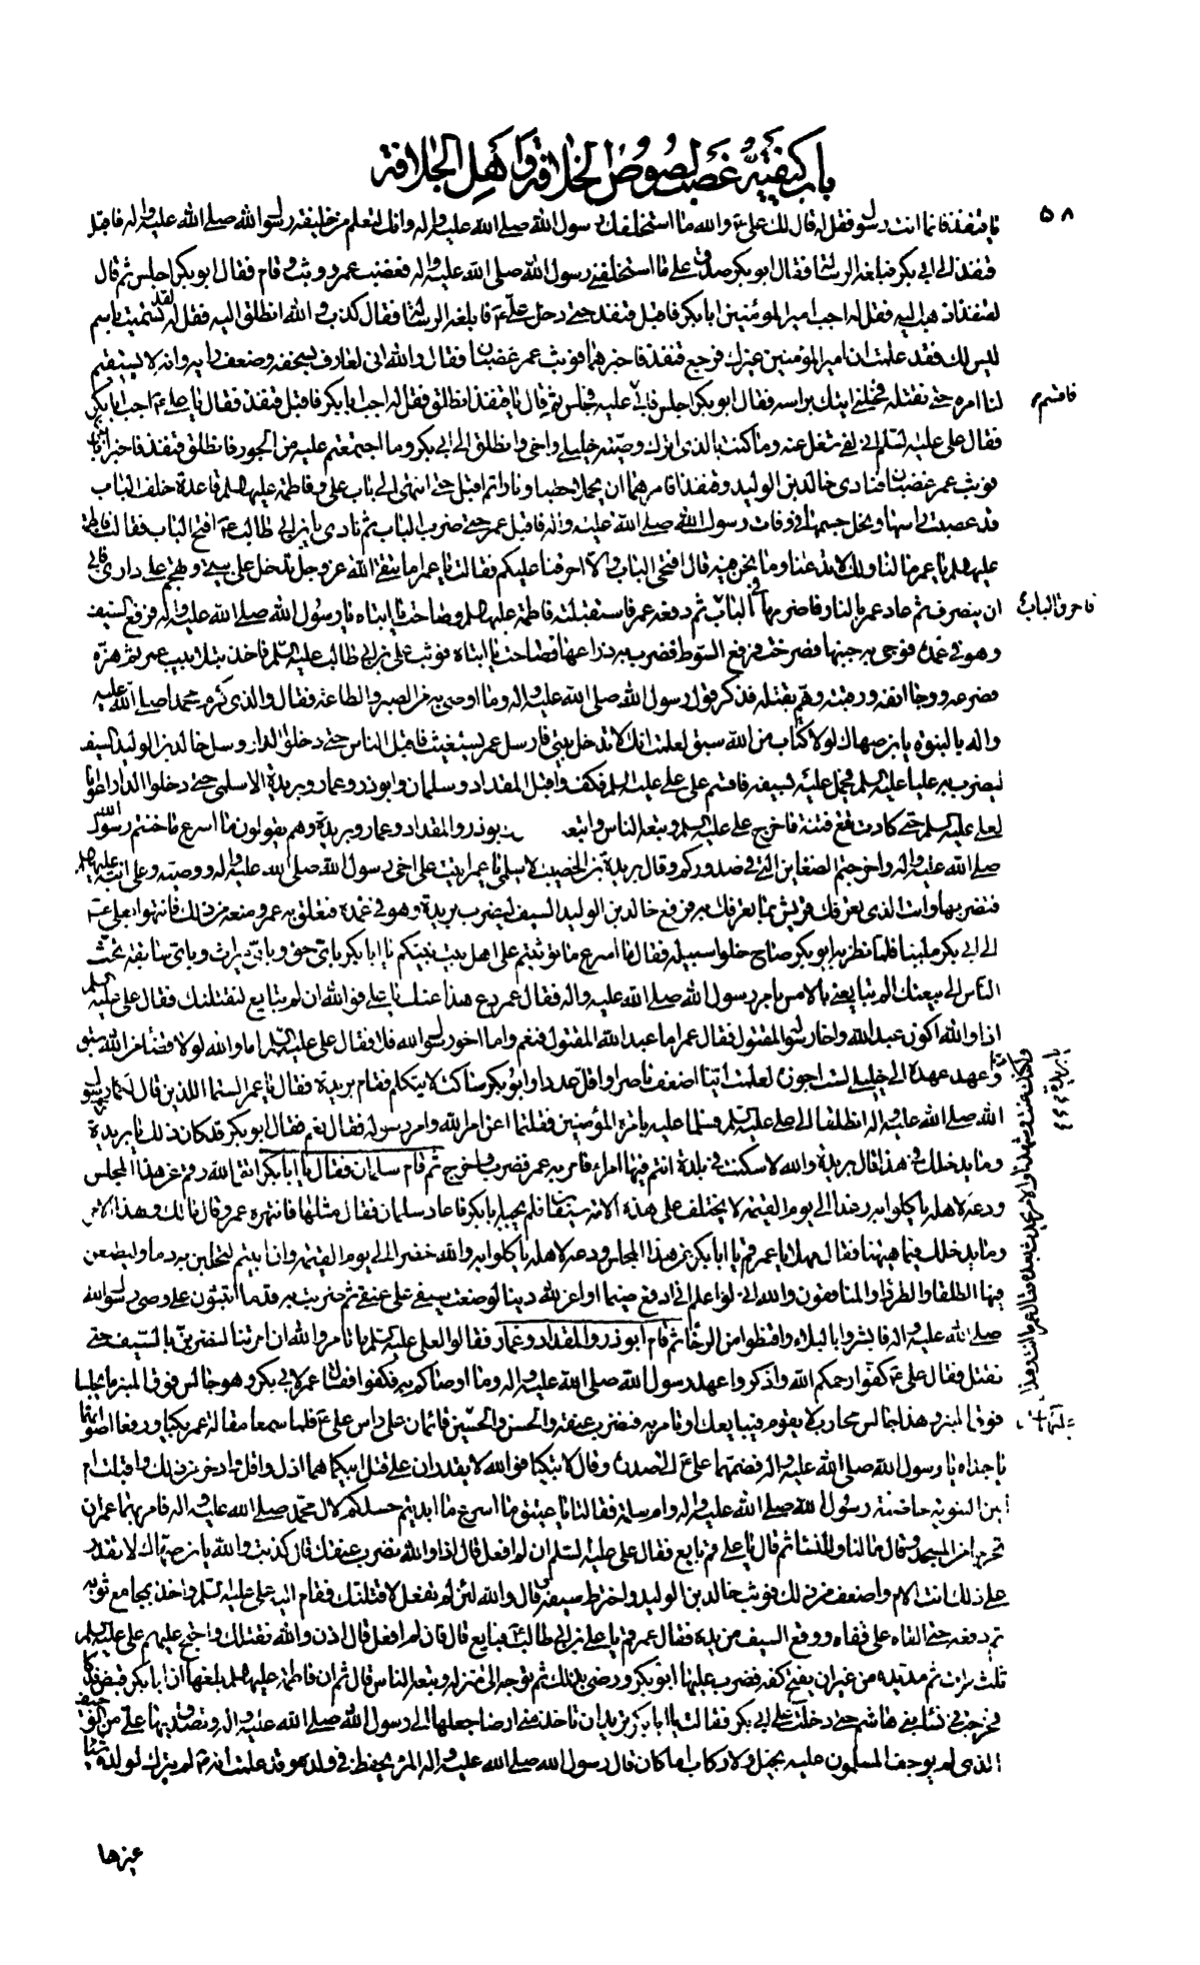 باب كيفية غصب لصوص الخلافة واهل الجلافة
٥٨
يا قنفذ فانما انت رسول فقل له قال لك علي ع والله ما استخلفك رسول الله صلى الله عليه واله وانك لتعلم من خليفة رسول الله صلى الله عليه واله فاقبل
قنفذ الى ابي بكر فبلغه الرسالة فقال ابو بكر صدق علي ما استخلفني رسول الله صلى الله عليه واله فغضب عمر ووثب وقام فقال ابو بكر اجلس ثم قال
لقنفذ اذهب اليه فقل له اجب امير المؤمنين ابا بكر فاقبل قنفذ حتى دخل على علي ع فابلغه الرسالة فقال كذب والله انطلق اليه فقل له لقد تسميت باسم
ليس لك فقد علمت ان امير المؤمنين غيرك فرجع قنفذ فاخبرهما فوثب عمر غضبان فقال والله اني لعارف بسخفه وضعف رايه وانه لا يستقيم
لنا امر حتى نقتله فخلني اتيك براسه فقال ابو بكر اجلس فابى فاقسم عليه فجلس ثم قال يا قنفذ انطلق فقل له اجب ابا بكر فاقبل قنفذ فقال يا علي اجب ابا بكر
فقال علي عليه السلم اني لفي شغل عنه وما كنت بالذي اترك وصية خليلي واخي وانطلق الى ابي بكر وما اجتمعتم عليه من الجور فانطلق قنفذ فاخبر ابا بكر
فوثب عمر غضبان فنادى خالد بن الوليد وقنفذا فامرهما ان يحملا حطبا ونارا ثم اقبل حتى انتهى الى باب علي وفاطمة عليهما السلم قاعدة خلف الباب
قد عصبت راسها ونحل جسمها في وفات رسول الله صلى الله عليه واله فاقبل عمر حتى ضرب الباب ثم نادى يا بن ابي طالب ع افتح الباب فقالت فاطمة
عليها السلم يا عمر ما لنا ولك لا تدعنا وما نحن فيه قال افتحي الباب والا احرقنا عليكم فقالت يا عمر اما تتقي الله عز وجل تدخل على بيتي وتهجم على داري فابى
ان ينصرف ثم عاد عمر بالنار فاضرمها في الباب فاحرق الباب ثم دفعه عمر فاستقبلته فاطمة عليها السلم وصاحت يا ابتاه يا رسول الله صلى الله عليه واله فرفع السيف
وهو في غمده فوجئ به جنبها فصرخت فرفع السوط فضرب به ذراعها فصاحت يا ابتاه فوثب علي بن ابي طالب عليه السلم فاخذ بتلابيب عمر ثم هزه
فصرعه ووجا انفه ورقبته وهم بقتله فذكر قول رسول الله صلى الله عليه واله وما اوصى به من الصبر والطاعة فقال والذي كرم محمدا صلى الله عليه
واله بالنبوة يا بن صهاك لولا كتاب من الله سبق لعلمت انك لا تدخل بيتي فارسل عمر يستغيث فاقبل الناس حتى دخلوا الدار وسل خالد بن الوليد السيف
ليضرب به عليا عليه السلم فحمل عليه بسيفه فاقسم على علي عليه السلم فكف واقبل المقداد وسلمان وابو ذر وعمار وبريدة الاسلمي حتى دخلوا الدار اعوانا
لعلي عليه السلم حتى كادت تقع فتنة فاخرج علي عليه السلم وتبعه الناس واتبعه بوذر والمقداد وعمار وبريدة وهم يقولون ما اسرع ما خنتم رسول الله
صلى الله عليه واله واخرجتم الضغاين التي في صدوركم وقال بريدة بن الخصيب الاسلمي يا عمر اتيت على اخي رسول الله صلى الله عليه واله ووصيه وعلى ابنته عليها السلم
فتضربها وانت الذي يعرفك قريش بما يعرفك به فرفع خالد بن الوليد السيف ليضرب بريدة وهو في غمده فتعلق به عمر ومنعه من ذلك فانتهوا بعلي ع
الى ابي بكر ملببا فلما نظر به ابو بكر صاح خلوا سبيله فقال ما اسرع ما توثبتم على اهل بيت نبيكم يا ابا بكر باي حق وباي ميراث وباي سابقة تحث
الناس الى بيعتك الم تبايعني بالامس بامر رسول الله صلى الله عليه واله فقال عمر دع هذا عنك يا علي فوالله ان لم تبايع لنقتلنك فقال علي عليه السلم
اذا والله اكون عبد الله واخا رسول الله المقتول فقال عمر اما عبد الله المقتول فنعم واما اخو رسول الله فلا فقال علي عليه السلم اما والله لولا قضاء من الله سبق
وعهد عهده الي خليلي لست اجوزه لعلمت اينا اضعف ناصرا واقل عددا وابو بكر ساكت لا يتكلم فقام بريدة فقال يا عمر الستما اللذين قال لكما رسول
الله صلى الله عليه واله انطلقا الى علي عليه السلم فسلما عليه بامرة المؤمنين فقلتما اعن امر الله وامر رسوله فقال نعم فقال ابو بكر قد كان ذلك يا بريدة
وما يدخلك في هذا قال بريدة والله لا سكنت في بلدة انتم فيها امراء فامر به عمر فضرب واخرج ثم قام سلمان فقال يا ابا بكر اتق الله وقم عن هذا المجلس
ودعه لاهله ياكلوا به رغدا الى يوم القيمة لا يختلف على هذه الامة سيفان فلم يجبه ابا بكر فاعاد سلمان فقال مثلها فانتهره عمر وقال مالك وهذا الامر
وما يدخلك فيما هيهنا فقال مهلا يا عمر قم يا ابا بكر عن هذا المجلس ودعه لاهله ياكلوا به والله خضرا الى يوم القيمة وان ابيتم لتحلبن به دما وليطمعن
فيها الطلقاء والطرداء والمنافقون والله اني لو اعلم اني ادفع ضيما او اعز لله دينا لوضعت سيفي على عنقي ثم ضربت به قدما اتثبون على وصي رسول الله
صلى الله عليه واله فابشروا بالبلاء واقنطوا من الرخاء ثم قام ابو ذر والمقداد وعمار فقالوا لعلي عليه السلم ما تامر والله ان امرتنا لنضربن بالسيف حتى
نقتل فقال علي ع كفوا رحمكم الله واذكروا عهد رسول الله صلى الله عليه واله وما اوصاكم به فكفوا فقال عمر لابي بكر وهو جالس فوق المنبر ما يجلسك
فوق المنبر وهذا جالس محارب لا يقوم فيبايعك او تامر به فنضرب عنقه والحسن والحسين قائمان على راس علي ع فلما سمعا مقالة عمر بكيا ورفعا اصواتهما
يا جداه يا رسول الله صلى الله عليه واله فضمهما علي ع الى صدره وقال لا تبكيا فوالله لا يقدران على قتل ابيكما هما اذل واقل وادخر من ذلك واقبلت ام
ايمن النوبية حاضنة رسول الله صلى الله عليه واله وام سلمة فقالتا يا عتيق ما اسرع ما ابديتم حسدكم لال محمد صلى الله عليه واله فامر بهما عمر ان
تخرجا من المسجد وقال ما لنا وللنساء ثم قال يا علي قم بايع فقال علي عليه السلم ان لم افعل قال اذا والله نضرب عنقك قال كذبت والله يا بن صهاك لا تقدر
على ذلك انت الام واضعف من ذلك فوثب خالد بن الوليد واخترط سيفه وقال والله لئن لم تفعل لاقتلنك فقام اليه علي عليه السلم واخذ بمجامع ثوبه
ثم دفعه حتى القاه على قفاه ووقع السيف من يده فقال عمر قم يا علي بن ابي طالب فبايع قال فان لم افعل قال اذن والله نقتلك واحتج عليهم علي عليه السلم
ثلث مرات ثم مد يده من غير ان يفتح كفه فضرب عليها ابو بكر ورضي بذلك ثم توجه الى منزله وتبعه الناس قال ثم ان فاطمة عليها السلم بلغها ان ابا بكر قبض فدكا
فخرجت في نساء بني هاشم حتى دخلت على ابي بكر فقالت يا ابا بكر تريد ان تاخذ مني ارضا جعلها لي رسول الله صلى الله عليه واله وتصدق بها علي من الوجيف
الذي لم يوجف المسلمون عليه بخيل ولا ركاب اما كان قال رسول الله صلى الله عليه واله المرء يحفظ في ولده وقد علمت انه ع لم يترك لولده شيئا
غيرها